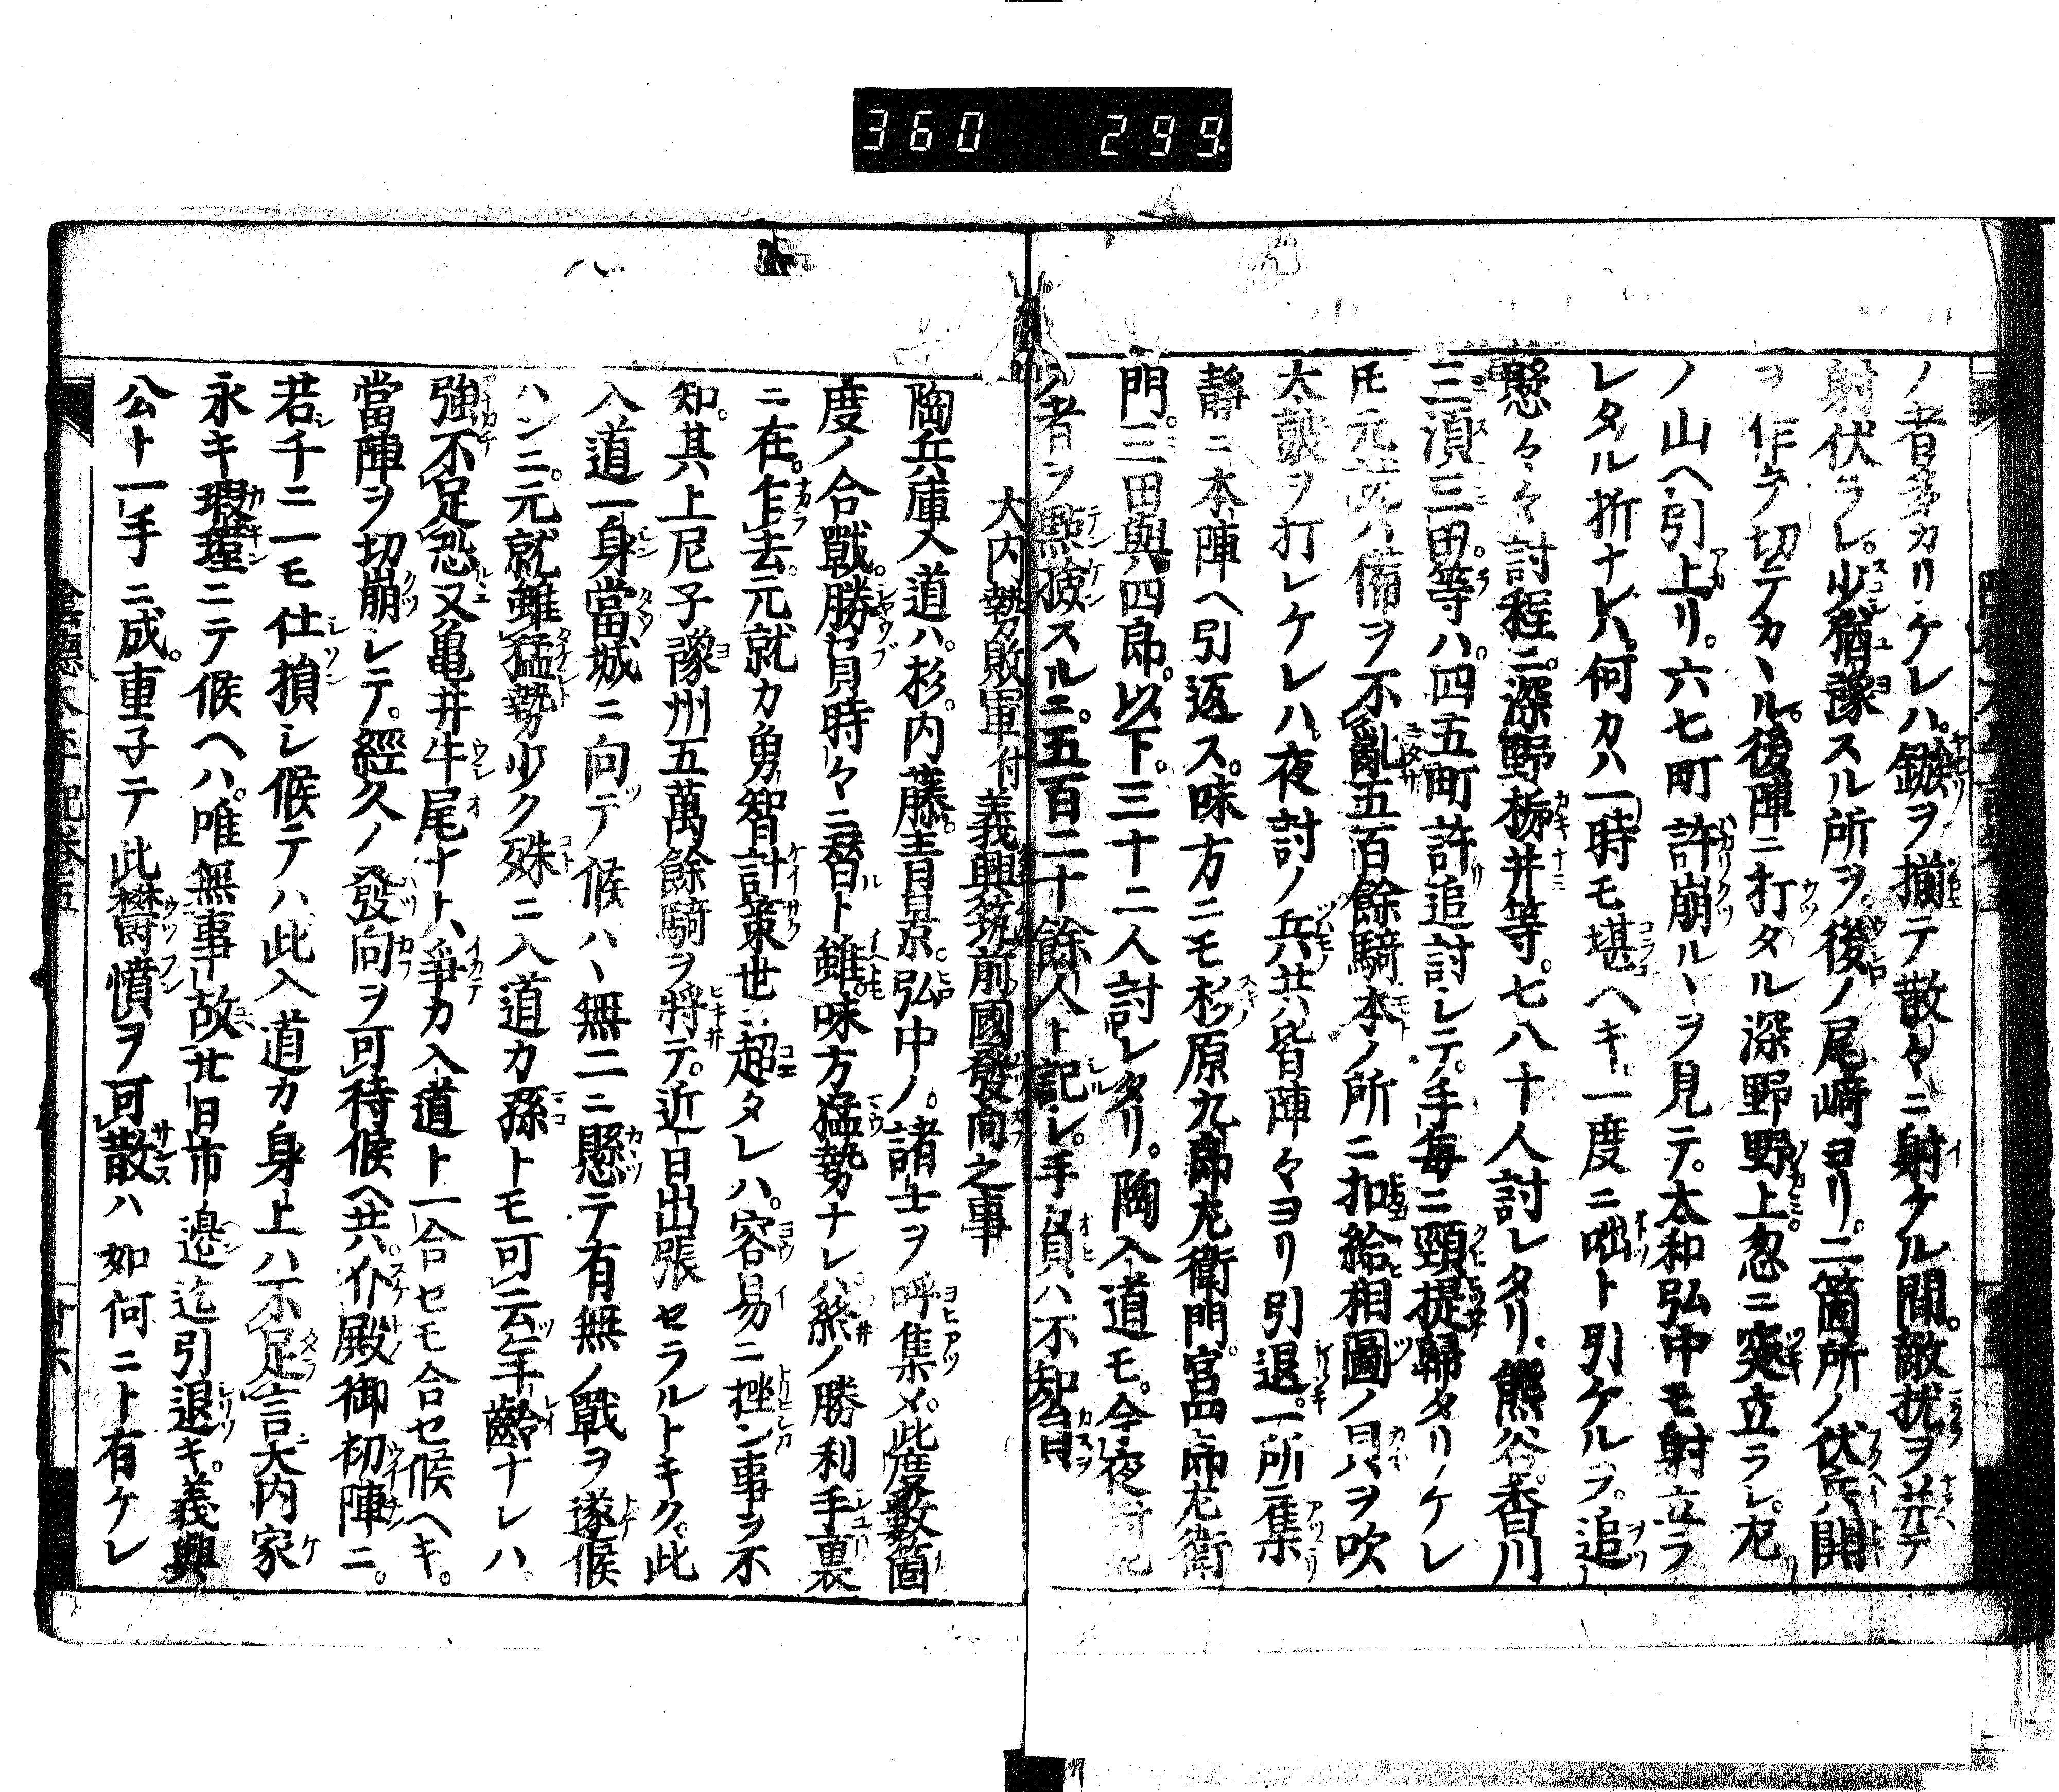 360 299
ノ者多カリケレハ。鏃ヲ揃テ散々ニ射ケル間。敵扰ヲ并テ
射伏ラレ。少猶豫スル所ヲ。後ノ尾崎ヨリ。二箇所ノ伏兵開
ヲ作テ切テカヽル。後陣ニ打タル深野野上忽ニ突立ラレ。尤
ノ山ヘ引上リ。六七町許崩ルヽヲ見テ。太和弘中モ射立ラ
レタル折ナレハ。何カハ一時モ堪ヘキ。一度ニ咄ト引ケルヲ。追
懸々々討程ニ。深野栃井等。七八十人討レタリ。熊谷。香川
三須三田等ハ。四五町許追討レテ。手毎ニ頸提歸タリケレ
𪜈元就ハ備ヲ不亂五百餘騎本ノ所ニ扣給相圖ノ貝ヲ吹
太鼓ヲ打レケレハ。夜討ノ兵共皆陣々ヨリ引退。一所ニ集
靜ニ本陣ヘ引返ス。味方ニモ杉原九郎左衛門。宮四郎左衛
門。三田與四郎。以下。三十二人討レタリ。陶入道モ。今夜討死
ノ者ヲ點撿スルニ。五百二十餘人ト記レ。手負ハ不知数日
大内勢敗軍付義興筑前國發向之事
陶兵庫入道ハ。杉。内藤。青景。弘中ノ。諸士ヲ呼集メ。此度数箇
度ノ合戰。勝負時々ニ替ルト雖。味方猛勢ナレハ。終ノ勝利手裏
ニ在。乍去。元就カ勇智計策世ニ超タレハ。容易ニ挫ン事ヲ不
知。其上尼子豫州五萬餘騎ヲ將テ。近日出張セラルトキク。此
入道一身當城ニ向テ候ハヽ無二ニ懸テ有無ノ戰ヲ遂候
ハンニ。元就雖猛勢少ク殊ニ入道カ孫トモ可云年齡ナレハ。
強不足恐又亀井牛尾ナト、爭カ入道ト一合セモ合セ候ヘキ。
當陣ヲ切崩レテ。經久ノ發向ヲ可待候ヘ共。仆殿御初陣ニ。
若千ニ一モ仕損レ候テハ此入道カ身上ハ不足言大内家
永キ瑕瑾ニテ候ヘハ。唯無事ニ故廿日市邊迄引退キ。義興
公ト一手ニ成。重子テ此欝憤ヲ可散ハ如何ニト有ケレ